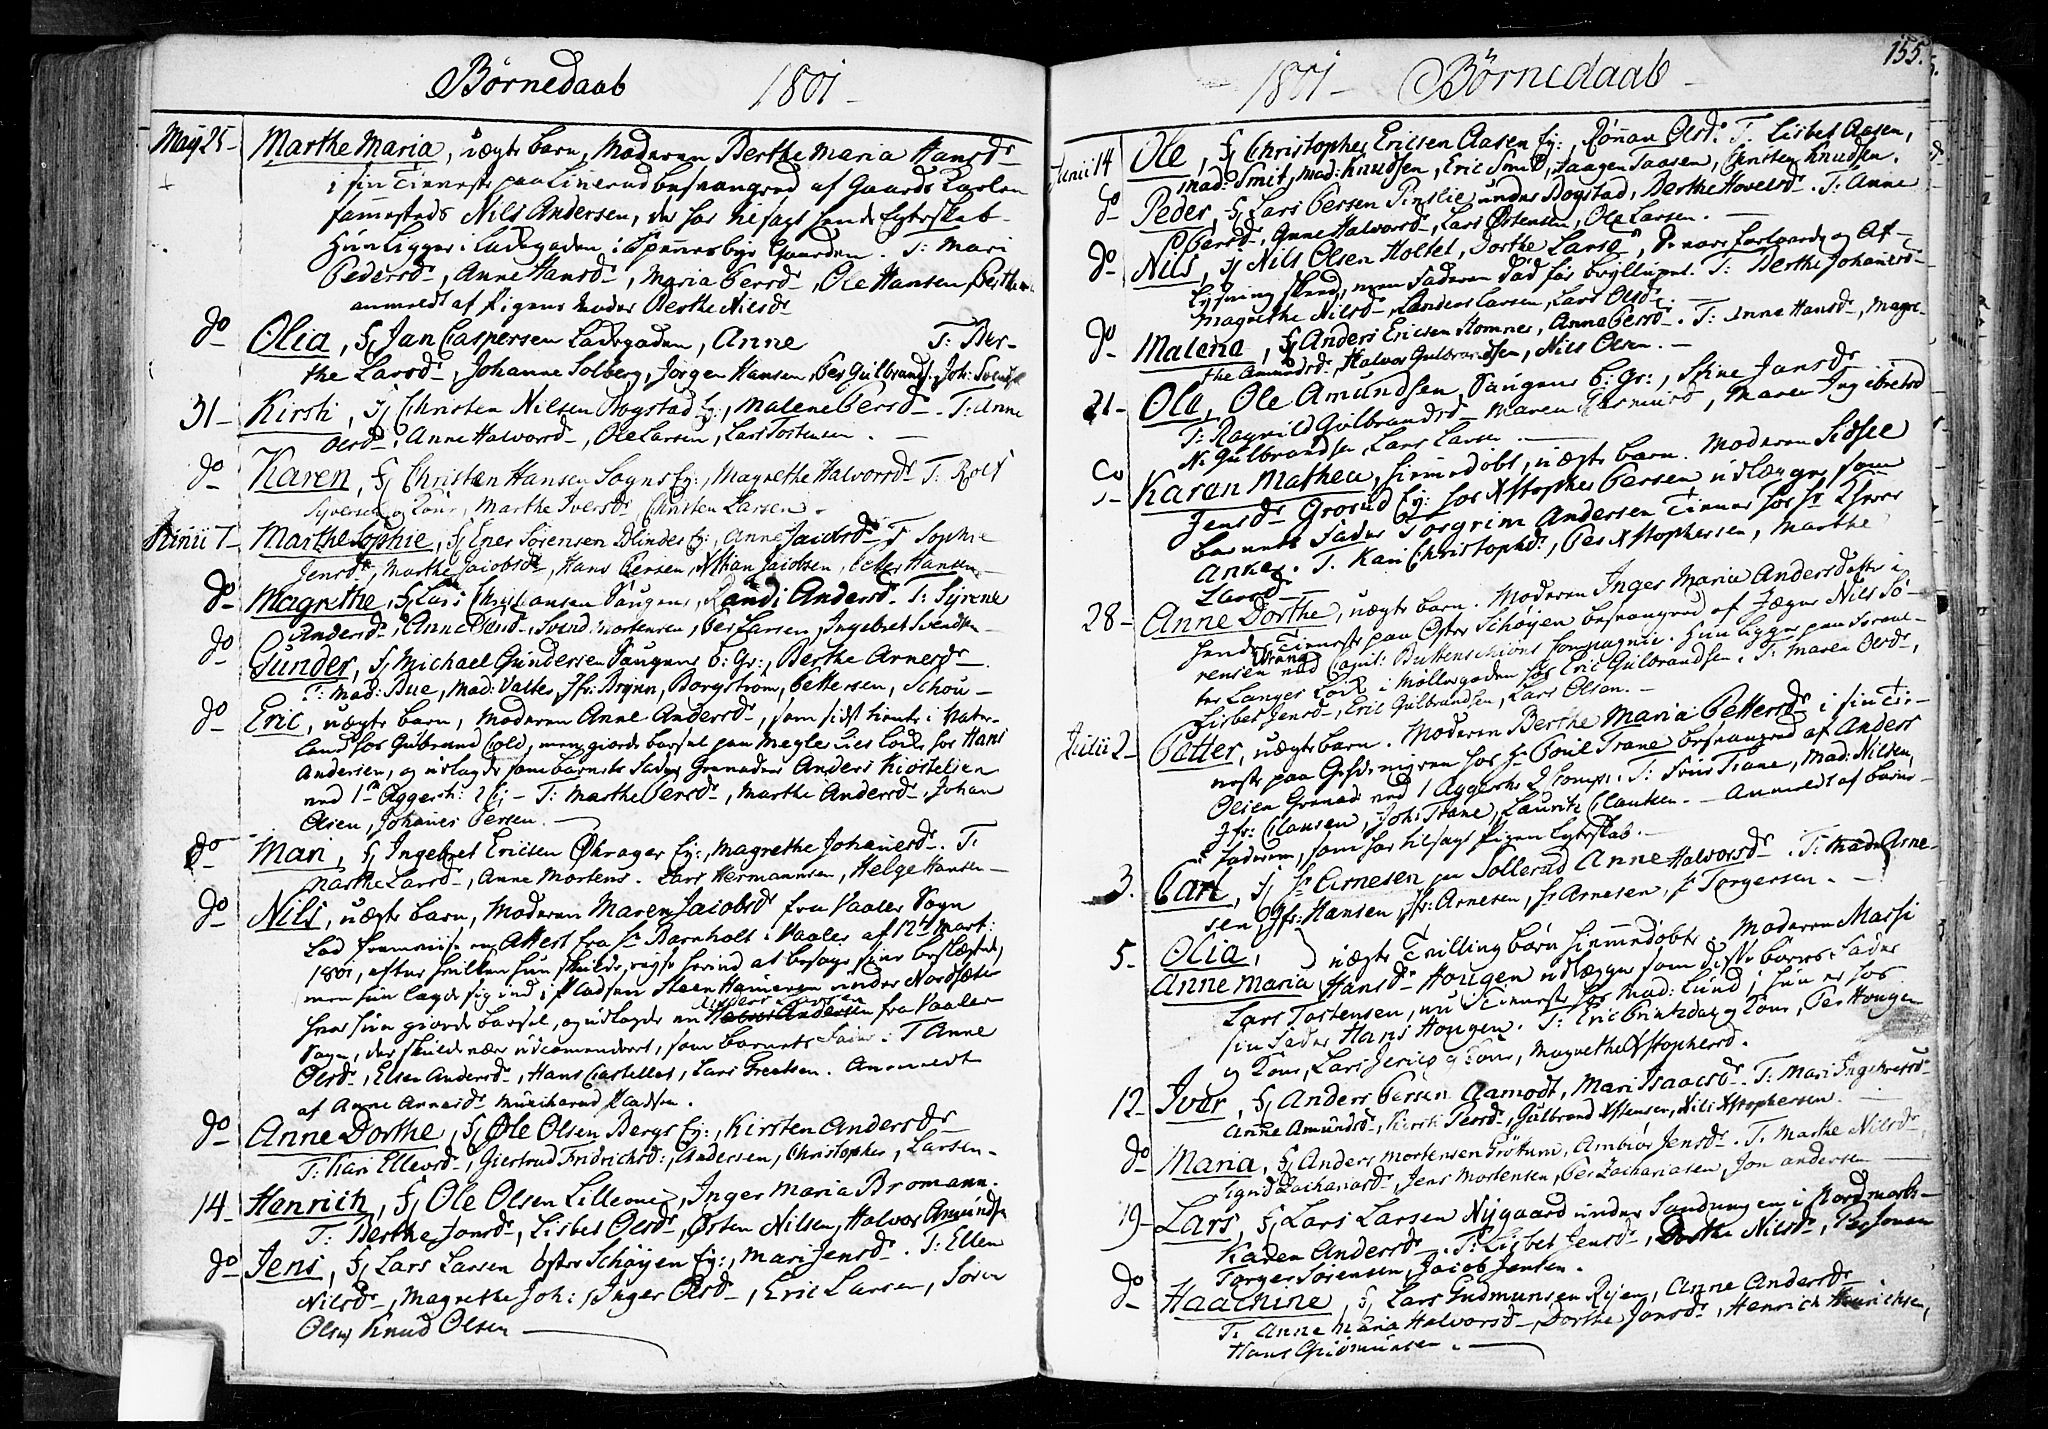 Børnedaab 1801 –
May 25 – Marthe Maria, uægte barn, Moderen Berthe Maria Hansd.
i sin Tieneste paa Linerud besvangred af Gaards Karlen
sammesteds Nils Andersen, der har tilsagt hende Egteskab
Hun Ligger i Ladegaden, i Gaarden. T: Mari
Pedersd., Anne Hansd., Maria Persd., Ole Hansen
anmeldt af Pigens moder Berthe Nilsd.
do – Olia, f. Jan Caspersen Ladegaden, Anne T: Ber-
the Larsd., Johanne Solberg, Jørgen Hansen, Per Gulbrands., Joh: Svends.
31 – Kirsti, f. Christen Nilsen Bogstad Ej:, Malene Persd. – T: Anne
Olsd., Anne Halvorsd., Ole Larsen, Lars Tostensen. –
do – Karen, f. Christen Hansen Sogns Ej:, Magrethe Halvorsd. T: Rolf
Syversen og Kone, Marthe Iversd. Christen Larsen.
Junii 7 – Marthe Sophie, f. Ener Sørensen Blindes Ej:, Anne Jacobsd. T Sophie
Jensd., Marthe Jacobsd., Hans Persen, Jacobsen, Peder Hansen
do – Magrethe, f. Lars Christiansen Saugens, Randi Andersd. T: Syrene
Andersd., Anne Olsd., Svend Mortensen, Per Larsen, Ingebret Svendsen
do – Gunder, f. Michael Gundersen Saugens b: Gr:, Berthe Arnesd.
T: Mad: Bue, Mad: Valter, Jfr: Brynn, Borgstrøm, Pettersen, Schou –
do – Eric, uægte barn, Moderen Anne Andersd., som sidst tiente i Vater-
land hos Gulbrand Cold, men giorde barsel paa Megler Lies løkke hos Hans
Andersen, og udlagde som barnets Fader Grenadeer Anders Kiøstelsen
ved 1te Aggersh: 2 C – T: Marthe Persd., Marthe Andersd., Johan
Olsen, Johanes Persen. –
do – Mari, f. Ingebret Ericsen Øhrager Ej:, Magrethe Johanesd. T.
Marthe Larsd., Anne Mortens. Lars Hermannsen, Helge Hansen –
do – Nils, uægte barn, Moderen Maren Jacobsd. fra Vaaler Sogn
Lod fremviise en Attest fra Hr Barnholt i Vaaler af 12te Mart:
1801, efter hvilken hun skulde reyse herind at besøge sine beslægtede,
men hun lagde sig ind i Pladsen Steen Hameren under Nordsæter
hvor hun giorde barsel, og udlagde en Anders Larsen Halvor Andersen fra Vaaler
Sogn, der skulde være udcomendeert, som barnets Fader: T Anne
Olsd., Elsen Andersd., Hans Castellet, Lars Grettsen. Anmeldt
af Anne Arnesd. Munkerud Pladsen.
do – Anne Dorthe, f. Ole Olsen Bergs Ej:, Kirsten Andersd.
T: Kari Ellevsd., Giertrud Fridrichsd., Andersen, Christopher, Larsen –
14 – Henrich, f. Ole Olsen Lilleone, Inger Maria Bromann.
T: Berthe Jonsd., Lisbet Olsd., Østen Nilsen, Halvor Amundsen
do – Jens, f. Lars Larsen Øster Schøyen Ej:, Mari Jensd. T: Ellen
Nilsd., Magrethe Joh:, Inger Olsd., Eric Larsen, Søren
Olsen, Knud Olsen –
155.
1801 – Børnedaab –
Junii 14 Ole, f. Christopher Ericsen Aasen Ej:, Rønau Olsd. T. Lisbet Aasen,
Mad: Smit, Mad: Knudsen, Eric Smed, Haagen Aasen, Christen Knudsen.
do – Peder, f. Lars Persen Pinslie under Bogstad, Berthe Hovelsd. T: Anne
Persd., Anne Halvorsd., Lars Østensen, Ole Larsen. –
do – Nils, f. Nils Olsen Holtet, Dorthe Larsd., de vare forlovede og Af-
Lysning skeed, men Faderen død før brylluppet. T: Berthe Johanesd.
Magrethe Nilsd., Anders Larsen, Lars Olsd.
do – Malena, f. Anders Ericsen Homnes, Anne Persd. T: Anne Hansd., Magre-
the Amundsd., Halvor Gulbrandsen, Nils Olsen. –
21 – Ole, Ole Amundsen Saugens b: Gr:, Stine Jansd.
T: Ragnild Gulbrandsd. Maren Rasmusd., Maren Ingebretsd.
N. Gulbrandsen, Lars Larsen
do – Karen Mathea, hiemedøbt, uægte barn. Moderen Sidsel
Jensd. Grorud Ej: hos Xstopher Persen udlægger som
barnets Fader Torgrim Andersen Tienner hos Hr Chr
Anker. T. Kari Christophd., Per Xstophersen, Marthe
Larsd.
28 – Anne Dorthe, uægte barn. Moderen Inger Maria Andersdatter i
hendes Tieneste paa Øster Schøyen besvangred af Jæger Nils Sø-
rensen ved Capit: Buttenschiøns Compagnie. Hun ligger paa
ter Langes Løkke i Møllergaden hos Eric Gulbrandsen. T: Maren Olsd.,
Lisbet Jensd., Eric Gulbrandsen, Lars Olsen. –
Julii 2 – Petter, uægte barn. Moderen Berthe Maria Pettersd. i sin Tie-
neste paa hos Hr Poul Trane besvangred af Anders
Olsen Grenadr ved 1 Aggersh: 2 Comp:. T: Frue Trane, Mad: Nilsen,
Jfr: Clausen, Joh: Trane, Lauritz Clausen. – Anmeldt af barne-
faderen, som har tilsagt Pigen Egteskab. –
3. Carl, f. Hr Arnesen paa Sollerud Anne Halvorsd. T: Madm Arne-
sen, Jfr: Hansen, Jfr: Arnesen, Hr Arnesen, Hr Torgersen. –
5 – Olia, } uægte Tvilling børn hiemmedøbte. Moderen Massi
Anne Maria Hansd. Hougen udlægger som disse børns Fader
Lars Tostensen, nu i Tieneste hos Mad: Lund; hun er hos
sin Fader Hans Hougen. T: Eric og Kone, Per Hougen
og Kone, Lars og Kone, Magrethe Xstophersd.
12 – Iver, f. Anders Persen Aamodt, Mari Isaacsd. T: Mari Ingebretsd.
Anne Amundsd., Kirsti Persd., Gulbrand Xstensen, Nils Xstophersen.
do – Maria, f. Anders Mortensen Grøtum, Ambiør Jensd. T. Marthe Nilsd.,
Sigrid Zachariasd., Jens Mortensen, Per Zachariasen, Jon Andersen
19 – Lars, f. Lars Larsen Nygaard under Sandungen i Nordmark-
Karen Andersd. T: Lisbet Jensd., Dorthe Nilsd., Per Jonsen
Torger Sørensen, Jacob Jensen.
do – Haachine, f. Lars Gudmunsen Rejen, Anne Andersd.
T. Anne Maria Halvorsd., Dorthe Jonsd., Henrich Henrichsen,
Hans Gudmunsen. –